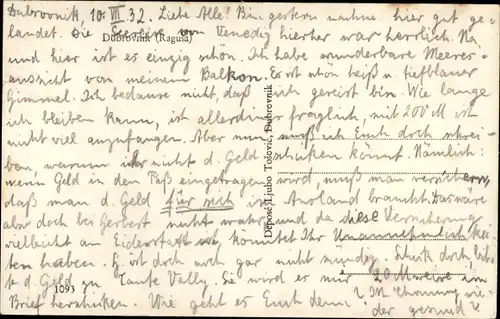 Dubrovnik, 10. VII. 32. Liebe Alle! Bin gestern nachm. hier gut ge-
landet. Die Seereise von Venedig hierher war herrlich. Na
Dubrovnik (Ragusa)
und hier ist es einzig schön. Ich habe wunderbare Meeres-
aussicht von meinem Balkon. Es ist schon heiß u. tiefblauer
Himmel. Ich bedaure nicht, daß ich gereist bin. Wie lange
ich bleiben kann, ist allerdings fraglich, mit 200 M ist
nicht viel anzufangen. Aber nun muß ich Euch doch schrei-
ben, warum ihr nicht d. Geld schicken könnt. Nämlich:
wenn Geld in den Paß eingetragen wird, muß man versichern,
daß man d. Geld für sich im Ausland braucht. Das wäre
aber doch bei Herbert nicht wahr und da diese Versicherung
vielleicht an Eidesstatt ist, könntet Ihr Unannehmlichkei-
ten haben. H. ist doch auch gar nicht mündig. Schickt doch, bit-
te d. Geld zu Tante Vally. Sie wird es mir 20 M weise im
Brief herschicken. Wie geht es Euch denn? Ist wie-
der gesund?
Depose Ljubo I Tošović, Dubrovnik
1093